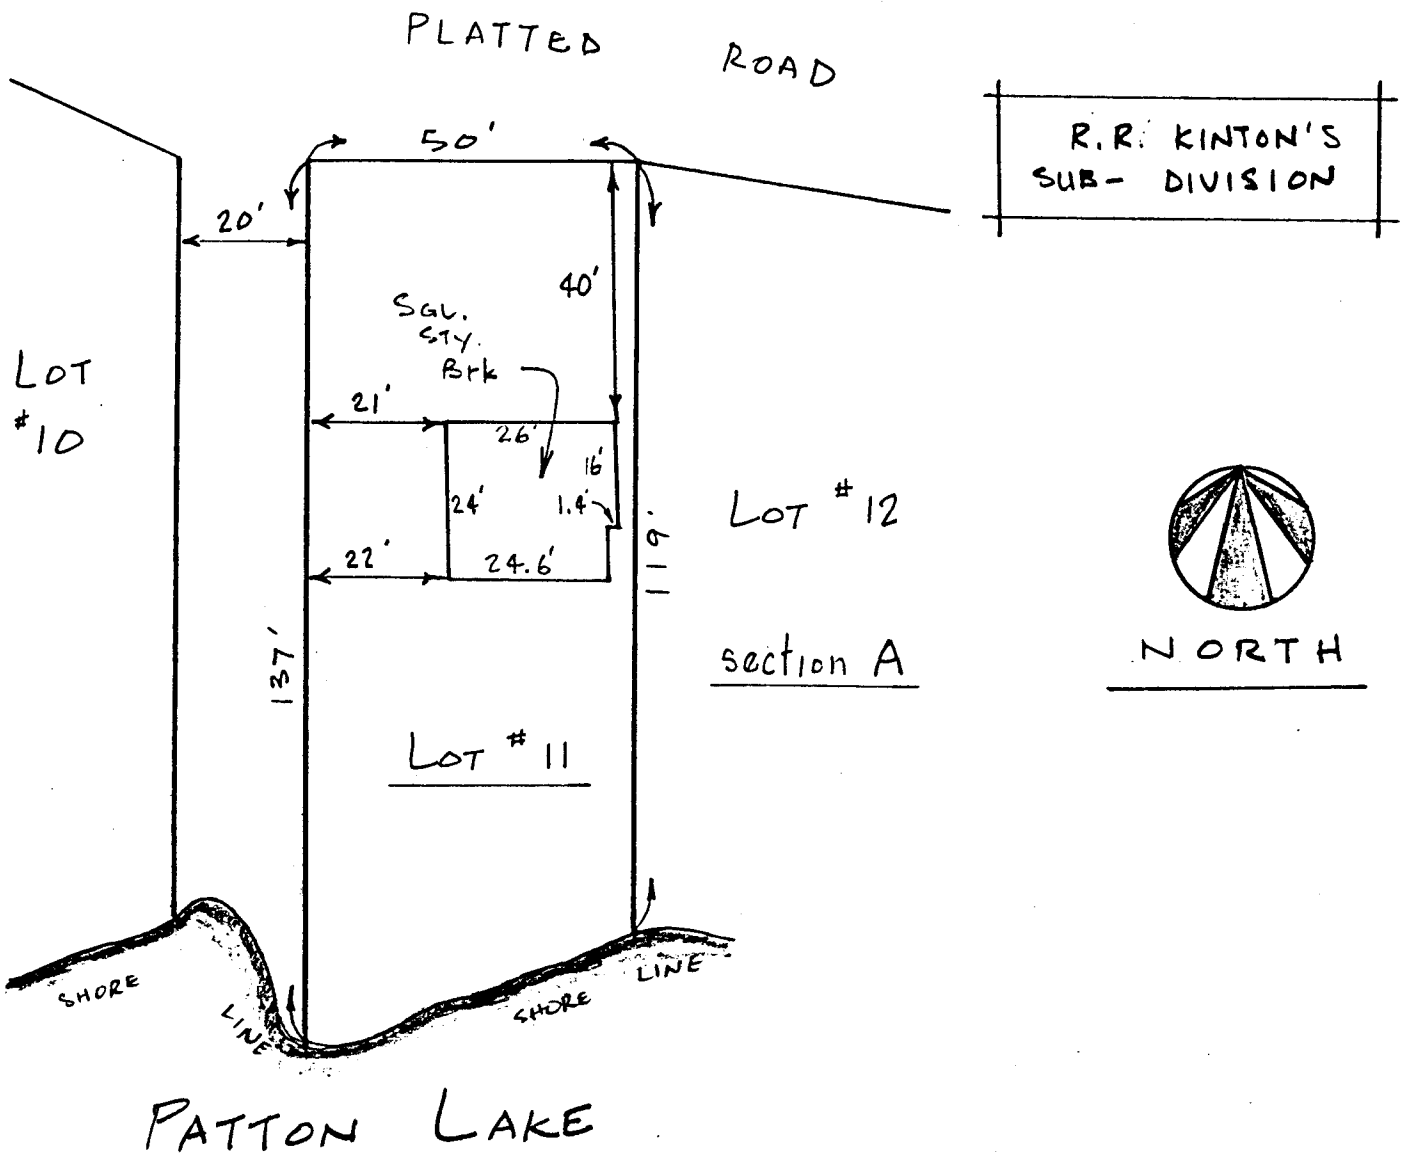 PLATTED ROAD
R.R. KINTON'S
SUB- DIVISION
50'
20'
40'
SGL.
STY.
Brk
LOT
#10
21'
26'
16'
24'
1.4'
LOT #12
119'
22'
24.6'
137'
section A
NORTH
LOT #11
SHORE
LINE
SHORE
LINE
PATTON LAKE